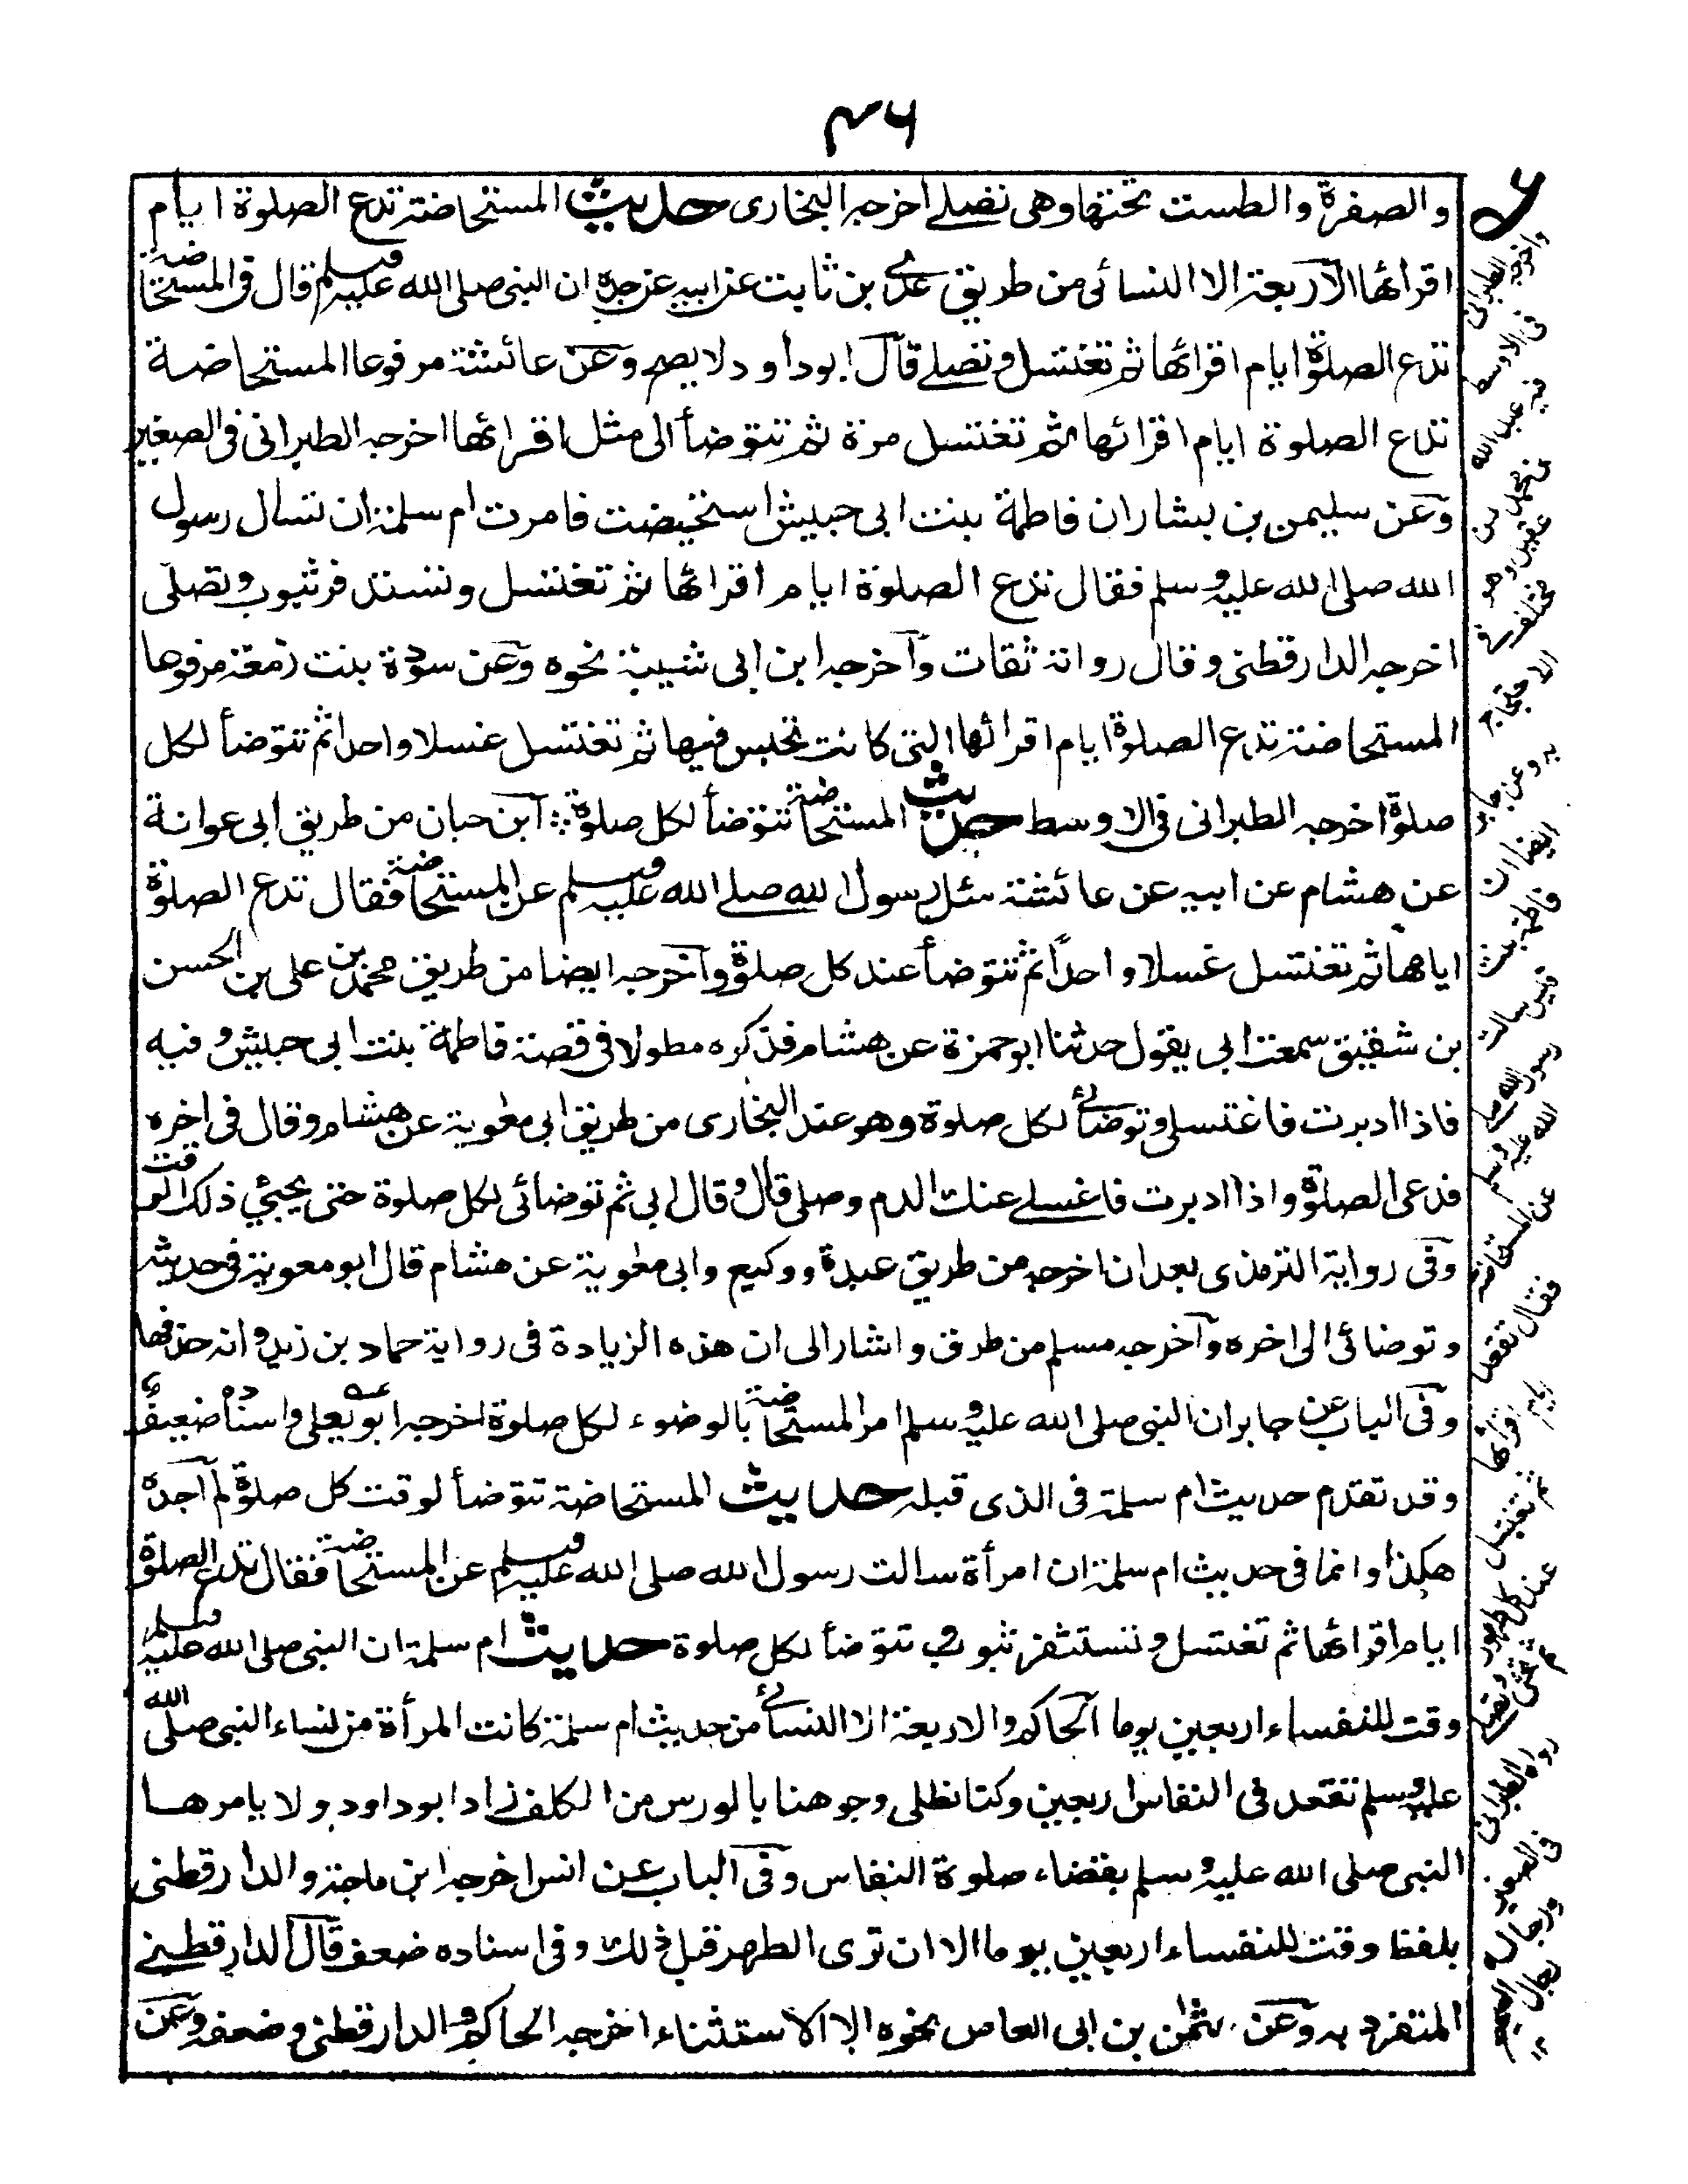 ۴۶
والصفرة والطست تحتها وهى تصلے اخرجہ البخارى حديث المستحاضة تدع الصلوة ايام
اقرائها الاربعة الا النسائى من طريق عدے بن ثابت عن ابيه عن جدہ ان النبى صلى الله عليه وسلم قال فى المستحاضة
تدع الصلوة ايام اقرائها ثم تغتسل وتصلے قال ابوداود لا يصح وعن عائشة مرفوعا المستحاضة
تدع الصلوة ايام اقرائها ثم تغتسل مرة ثم تتوضأ الى مثل اقرائها اخرجه الطبرانى فى الصغير
وعن سليمن بن يسار ان فاطمة بنت ابى حبيش استحيضت فامرت ام سلمة ان تسال رسول
الله صلى الله عليه وسلم فقال تدع الصلوة ايام اقرائها ثم تغتسل وتستذفر بثوب وتصلى
اخرجه الدارقطنى وقال رواته ثقات وآخرجه ابن ابى شيبة نحوه وعن سودة بنت زمعة مرفوعا
المستحاضة تدع الصلوة ايام اقرائها التى كانت تجلس فيها ثم تغتسل غسلا واحدا ثم تتوضأ لكل
صلوة اخرجه الطبرانى فى الاوسط حديث المستحاضة تتوضأ لكل صلوة ابن حبان من طريق ابى عوانة
عن هشام عن ابيه عن عائشة سئل رسول الله صلے الله عليه وسلم عن المستحاضة فقال تدع الصلوة
اياها ثم تغتسل غسلا واحدًا ثم تتوضأ عند كل صلوة وآخرجه ايضا من طريق محمد بن على بن الحسن
بن شقيق سمعت ابى يقول حدثنا ابو حمزة عن هشام فذكره مطولا فى قصة فاطمة بنت ابى حبيش وفيه
فاذا ادبرت فاغتسلى وتوضائے لكل صلوة وهو عند البخارى من طريق ابى معوية عن هشام وقال فى اخره
فدعى الصلوة واذا ادبرت فاغسلے عنك الدم وصلى قال وقال ابى ثم توضائى لكل صلوة حتى يجيئ ذلك الوقت
وفى رواية الترمذى بعد ان اخرجه من طريق عبدة ووكيع وابى معوية عن هشام قال ابو معوية فى حديثه
وتوضائى الى اخره وآخرجه مسلم من طرق واشار الى ان هذه الزيادة فى رواية حماد بن زيد وانه حذفها
وفى الباب عن جابر ان النبى صلى الله عليه وسلم امر المستحاضة بالوضوء لكل صلوة اخرجه ابو يعلى واسناده ضعيف
وقد تقدم حديث ام سلمة فى الذى قبله حديث المستحاضة تتوضأ لوقت كل صلوة لم آجده
هكذا وانما فى حديث ام سلمة ان امرأة سالت رسول الله صلى الله عليه وسلم عن المستحاضة فقال تدع الصلوة
ايام اقرائها ثم تغتسل وتستثفر بثوب وتتوضأ لكل صلوة حديث ام سلمة ان النبى صلى الله عليه وسلم
وقت للنفساء اربعين يوما الحاكم والاربعة الا النسائے من حديث ام سلمة كانت المرأة من نساء النبى صلى الله
عليه وسلم تقعد فى النفاس اربعين وكنا نطلى وجوهنا بالورس من الكلف زاد ابوداود ولا يامرها
النبى صلى الله عليه وسلم بقضاء صلوة النفاس وفى الباب عن انس اخرجه ابن ماجة والدارقطنى
بلفظ وقت للنفساء اربعين يوما الا ان ترى الطهر قبل ذلك وفى اسناده ضعف قال الدارقطنے
المتفرد به وعن عثمن بن ابى العاص نحوه الا الاستثناء اخرجه الحاكم والدارقطنى وضعفه وعن
واخرجه الطبرانى
فى الاوسط
فيه عبد الله
بن محمد بن
عقيل وهو
مختلف فى
الاحتجاج
به وعن جابر
ايضا ان
فاطمة بنت
قيس سالت
رسول الله صلے
الله عليه وسلم
عن المستحاضة
فقال تقعد
ايام اقرائها
ثم تغتسل
عند كل طهور
ثم تحتشى وتصلے
رواه الطبرانى
فى الصغير
ورجاله
رجال الصحيح
۱۲